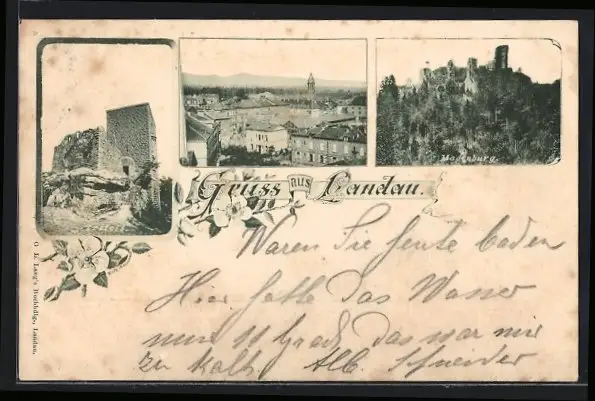 Madenburg
Gruss aus Landau.
Waren Sie heute baden
Hier hatte das Wasser
nur 11 Grad, das war mir
zu kalt. Alb. Schneider
L. Lang's Buchhdlg., Landau.